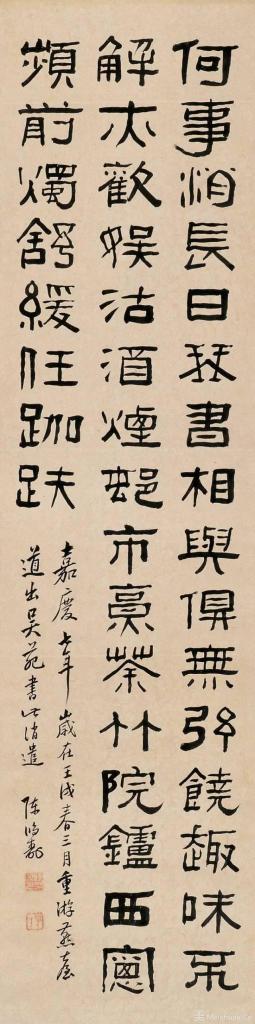 何事消長日琴書相與俱無弦饒趣味不
解亦歡娛沽酒煙邨市烹茶竹院鑪西窗
頻前燭舒緩任跏趺
嘉慶七年歲在壬戌春三月重游燕臺
道出吴苑書此消遣 陳鴻壽